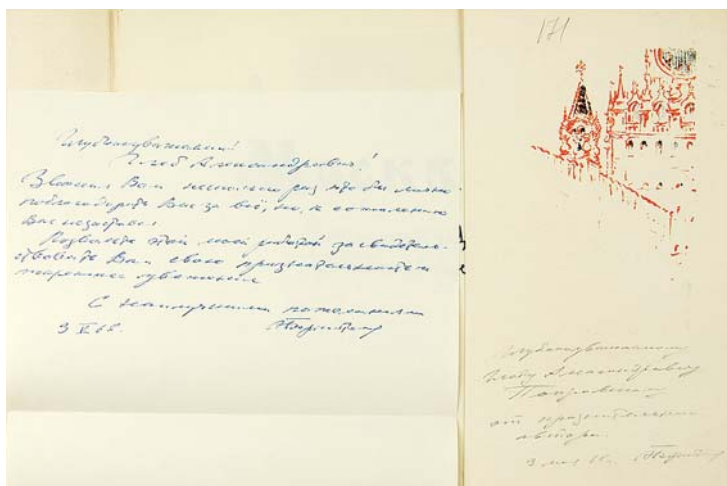 Глубокоуважаемый!
Глеб Александрович!
Звонил Вам несколько раз что бы лично
поблагодарить Вас за всё, но, к сожалению
Вас не заставал.
Позвольте этой моей работой засвидетель-
ствовать Вам свою признательность и
искреннее уважение
С наилучшими пожеланиями
3 V 66.
171
Глубокоуважаемому
Глебу Александровичу
от признательного
автора.
3 мая 66г.